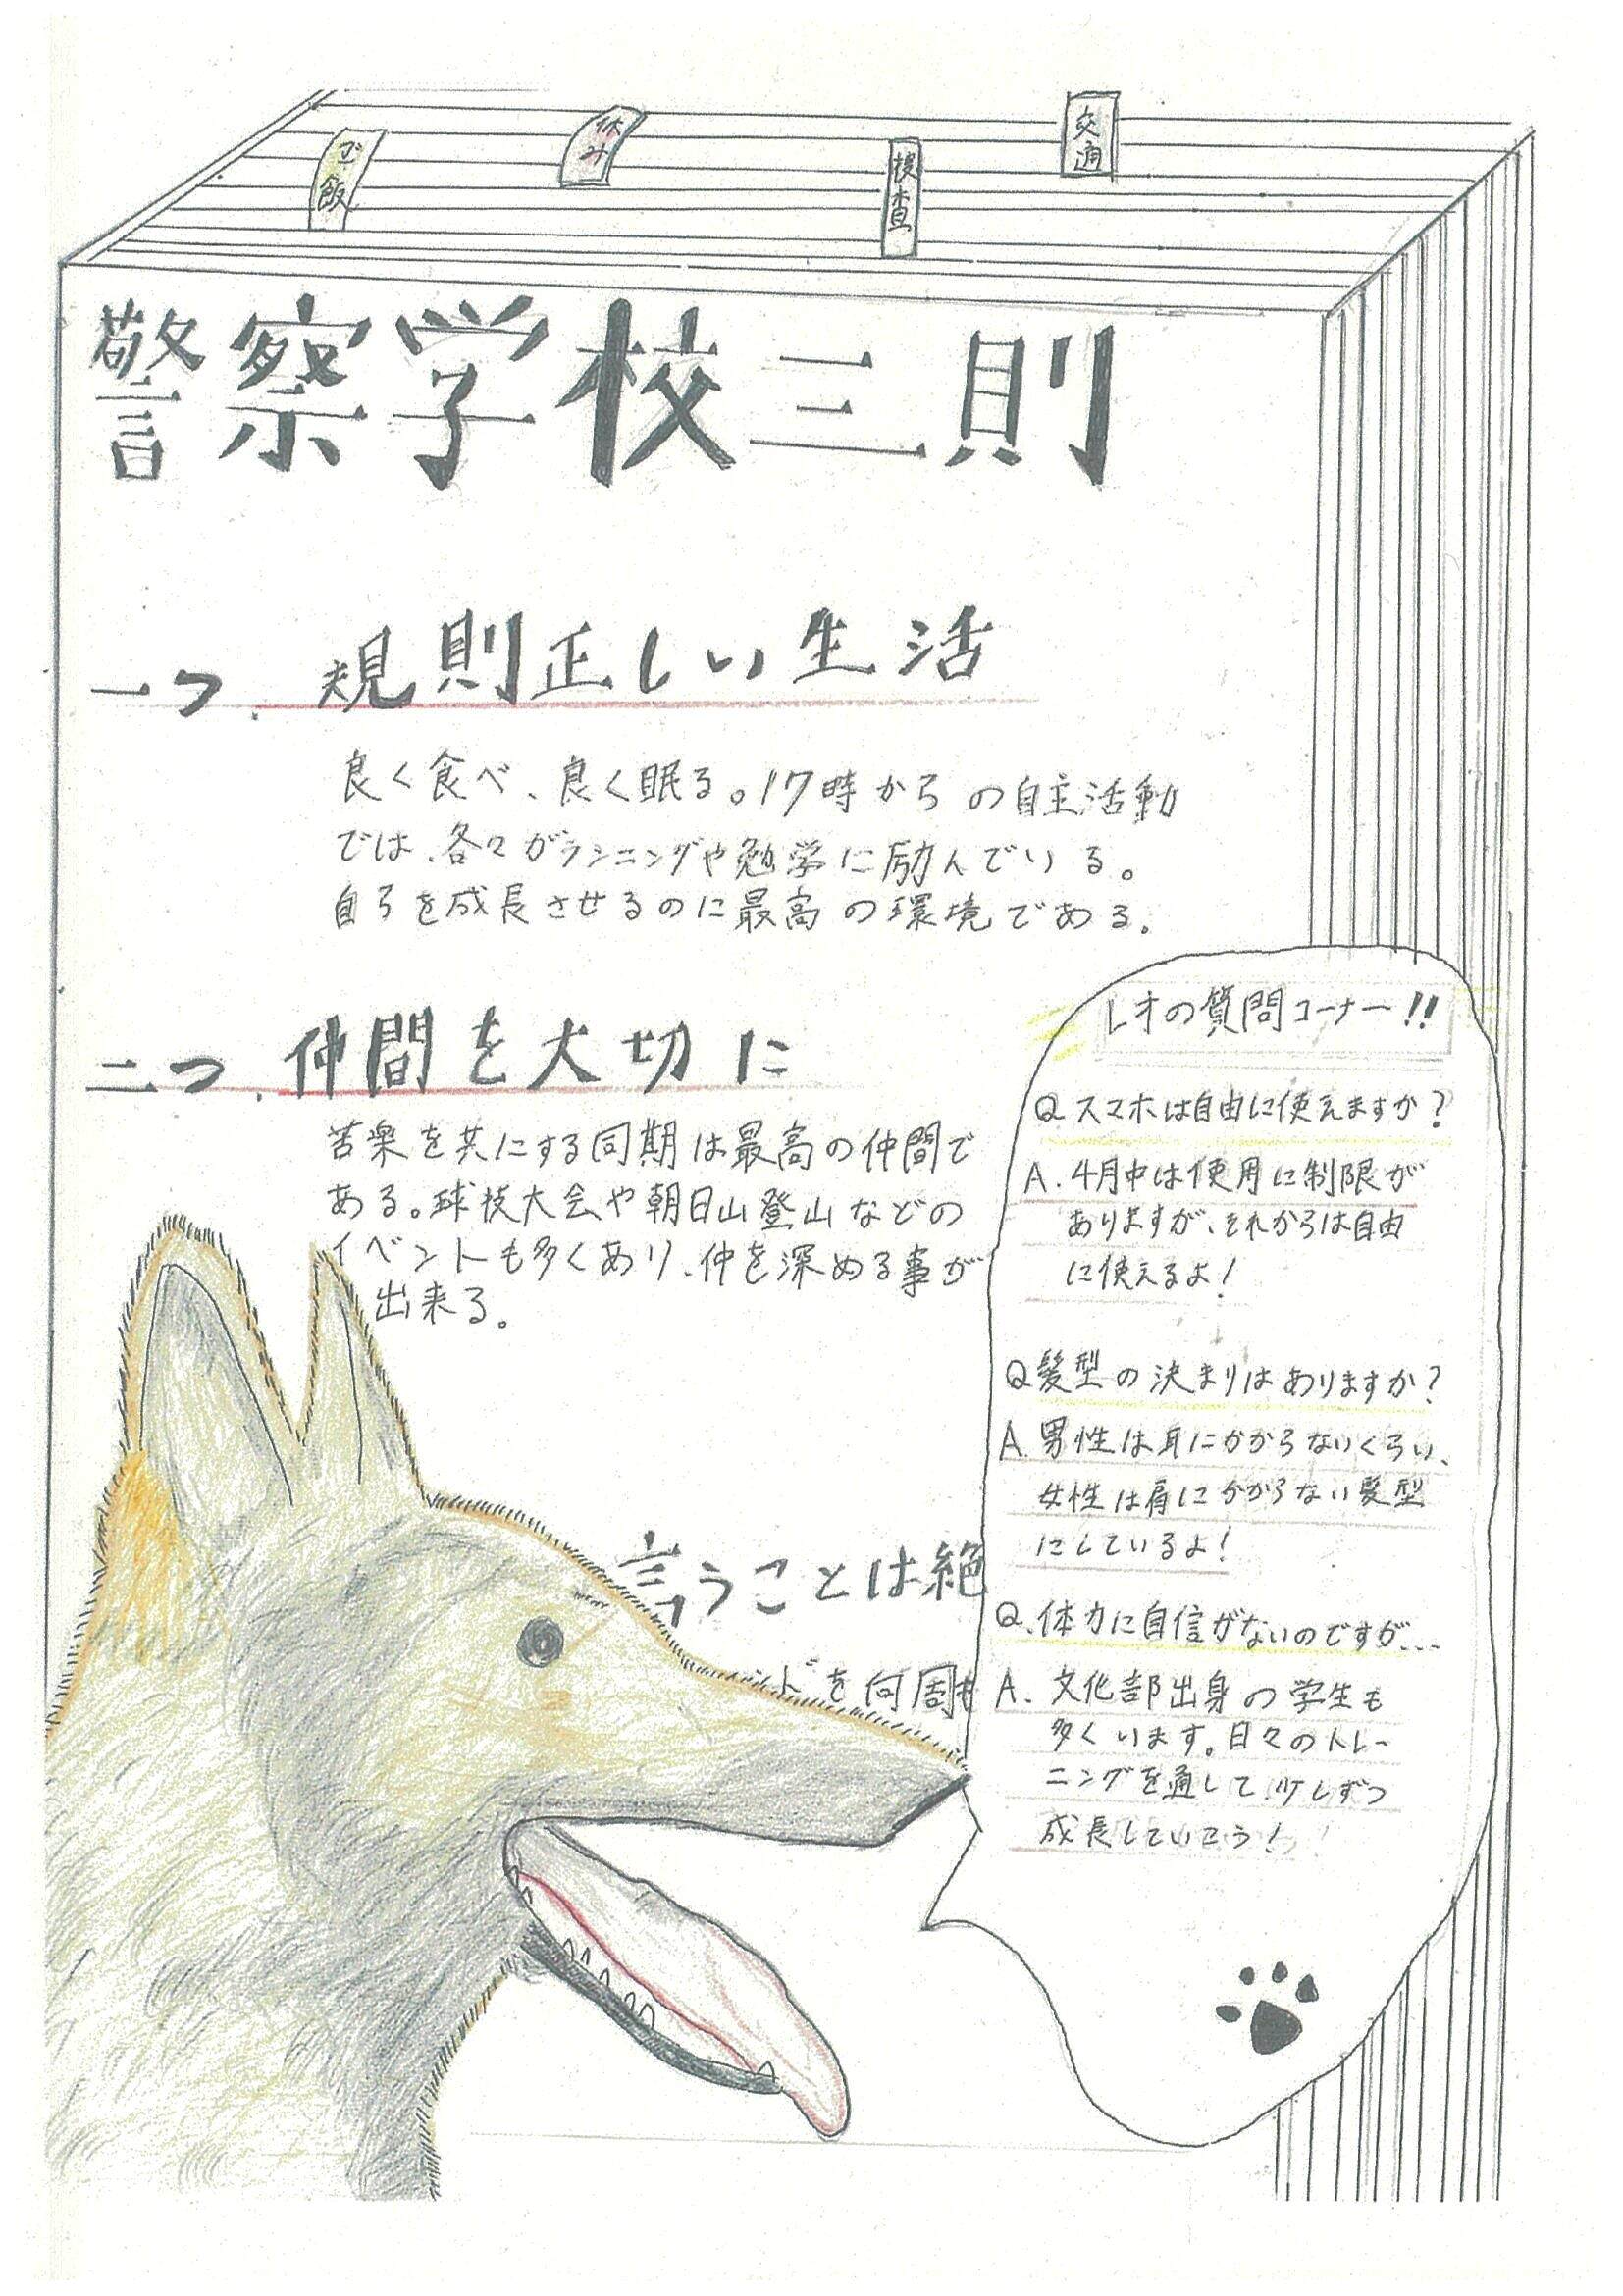 ご飯
休み
検査
交通
警察学校三則
一つ. 規則正しい生活
良く食べ、良く眠る。17時からの自主活動
では、各々がランニングや勉学に励んでいる。
自らを成長させるのに最高の環境である。
二つ. 仲間を大切に
苦楽を共にする同期は最高の仲間で
ある。球技大会や朝日山登山などの
イベントも多くあり、仲を深める事が
出来る。
言うことは絶
ンドを何周も
レオの質問コーナー!!
Q スマホは自由に使えますか?
A. 4月中は使用に制限が
ありますが、それからは自由
に使えるよ!
Q 髪型の決まりはありますか?
A. 男性は耳にかからないくらい、
女性は肩にかからない髪型
にしているよ!
Q. 体力に自信がないのですが...
A. 文化部出身の学生も
多くいます。日々のトレー
ニングを通して少しずつ
成長していこう!